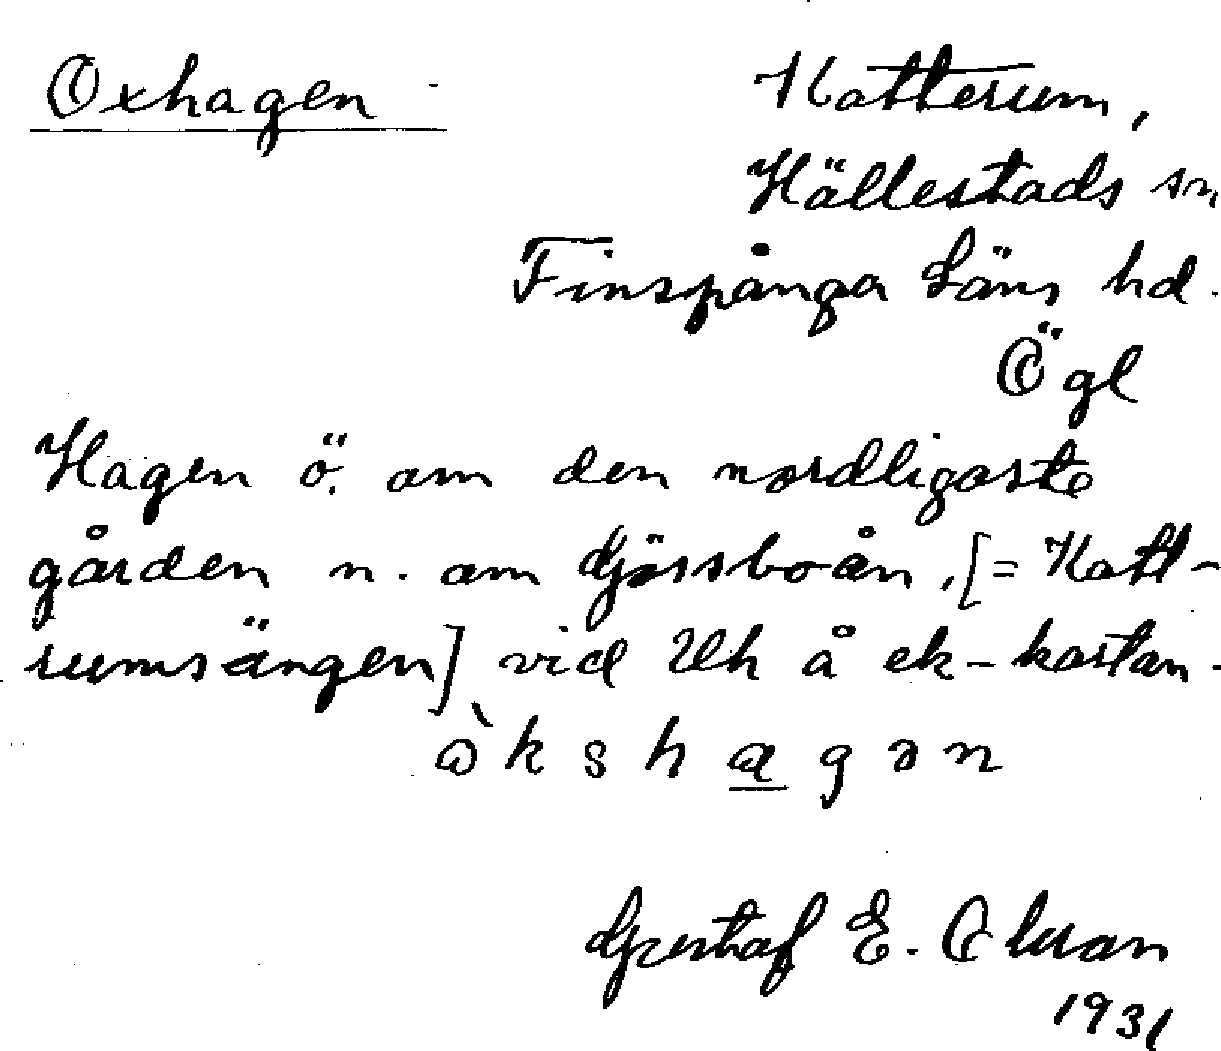 Oxhagen
Katterum,
Hällestads sn,
Finspånga Läns hd.
Ögl
Hagen ö. om den nordligaste
gården n. om djössboån, [= Katt-
rumsängen] vid Uh å ek-kartan.
ὼ k s h a g ə n
Gustaf E. Olsson
1931